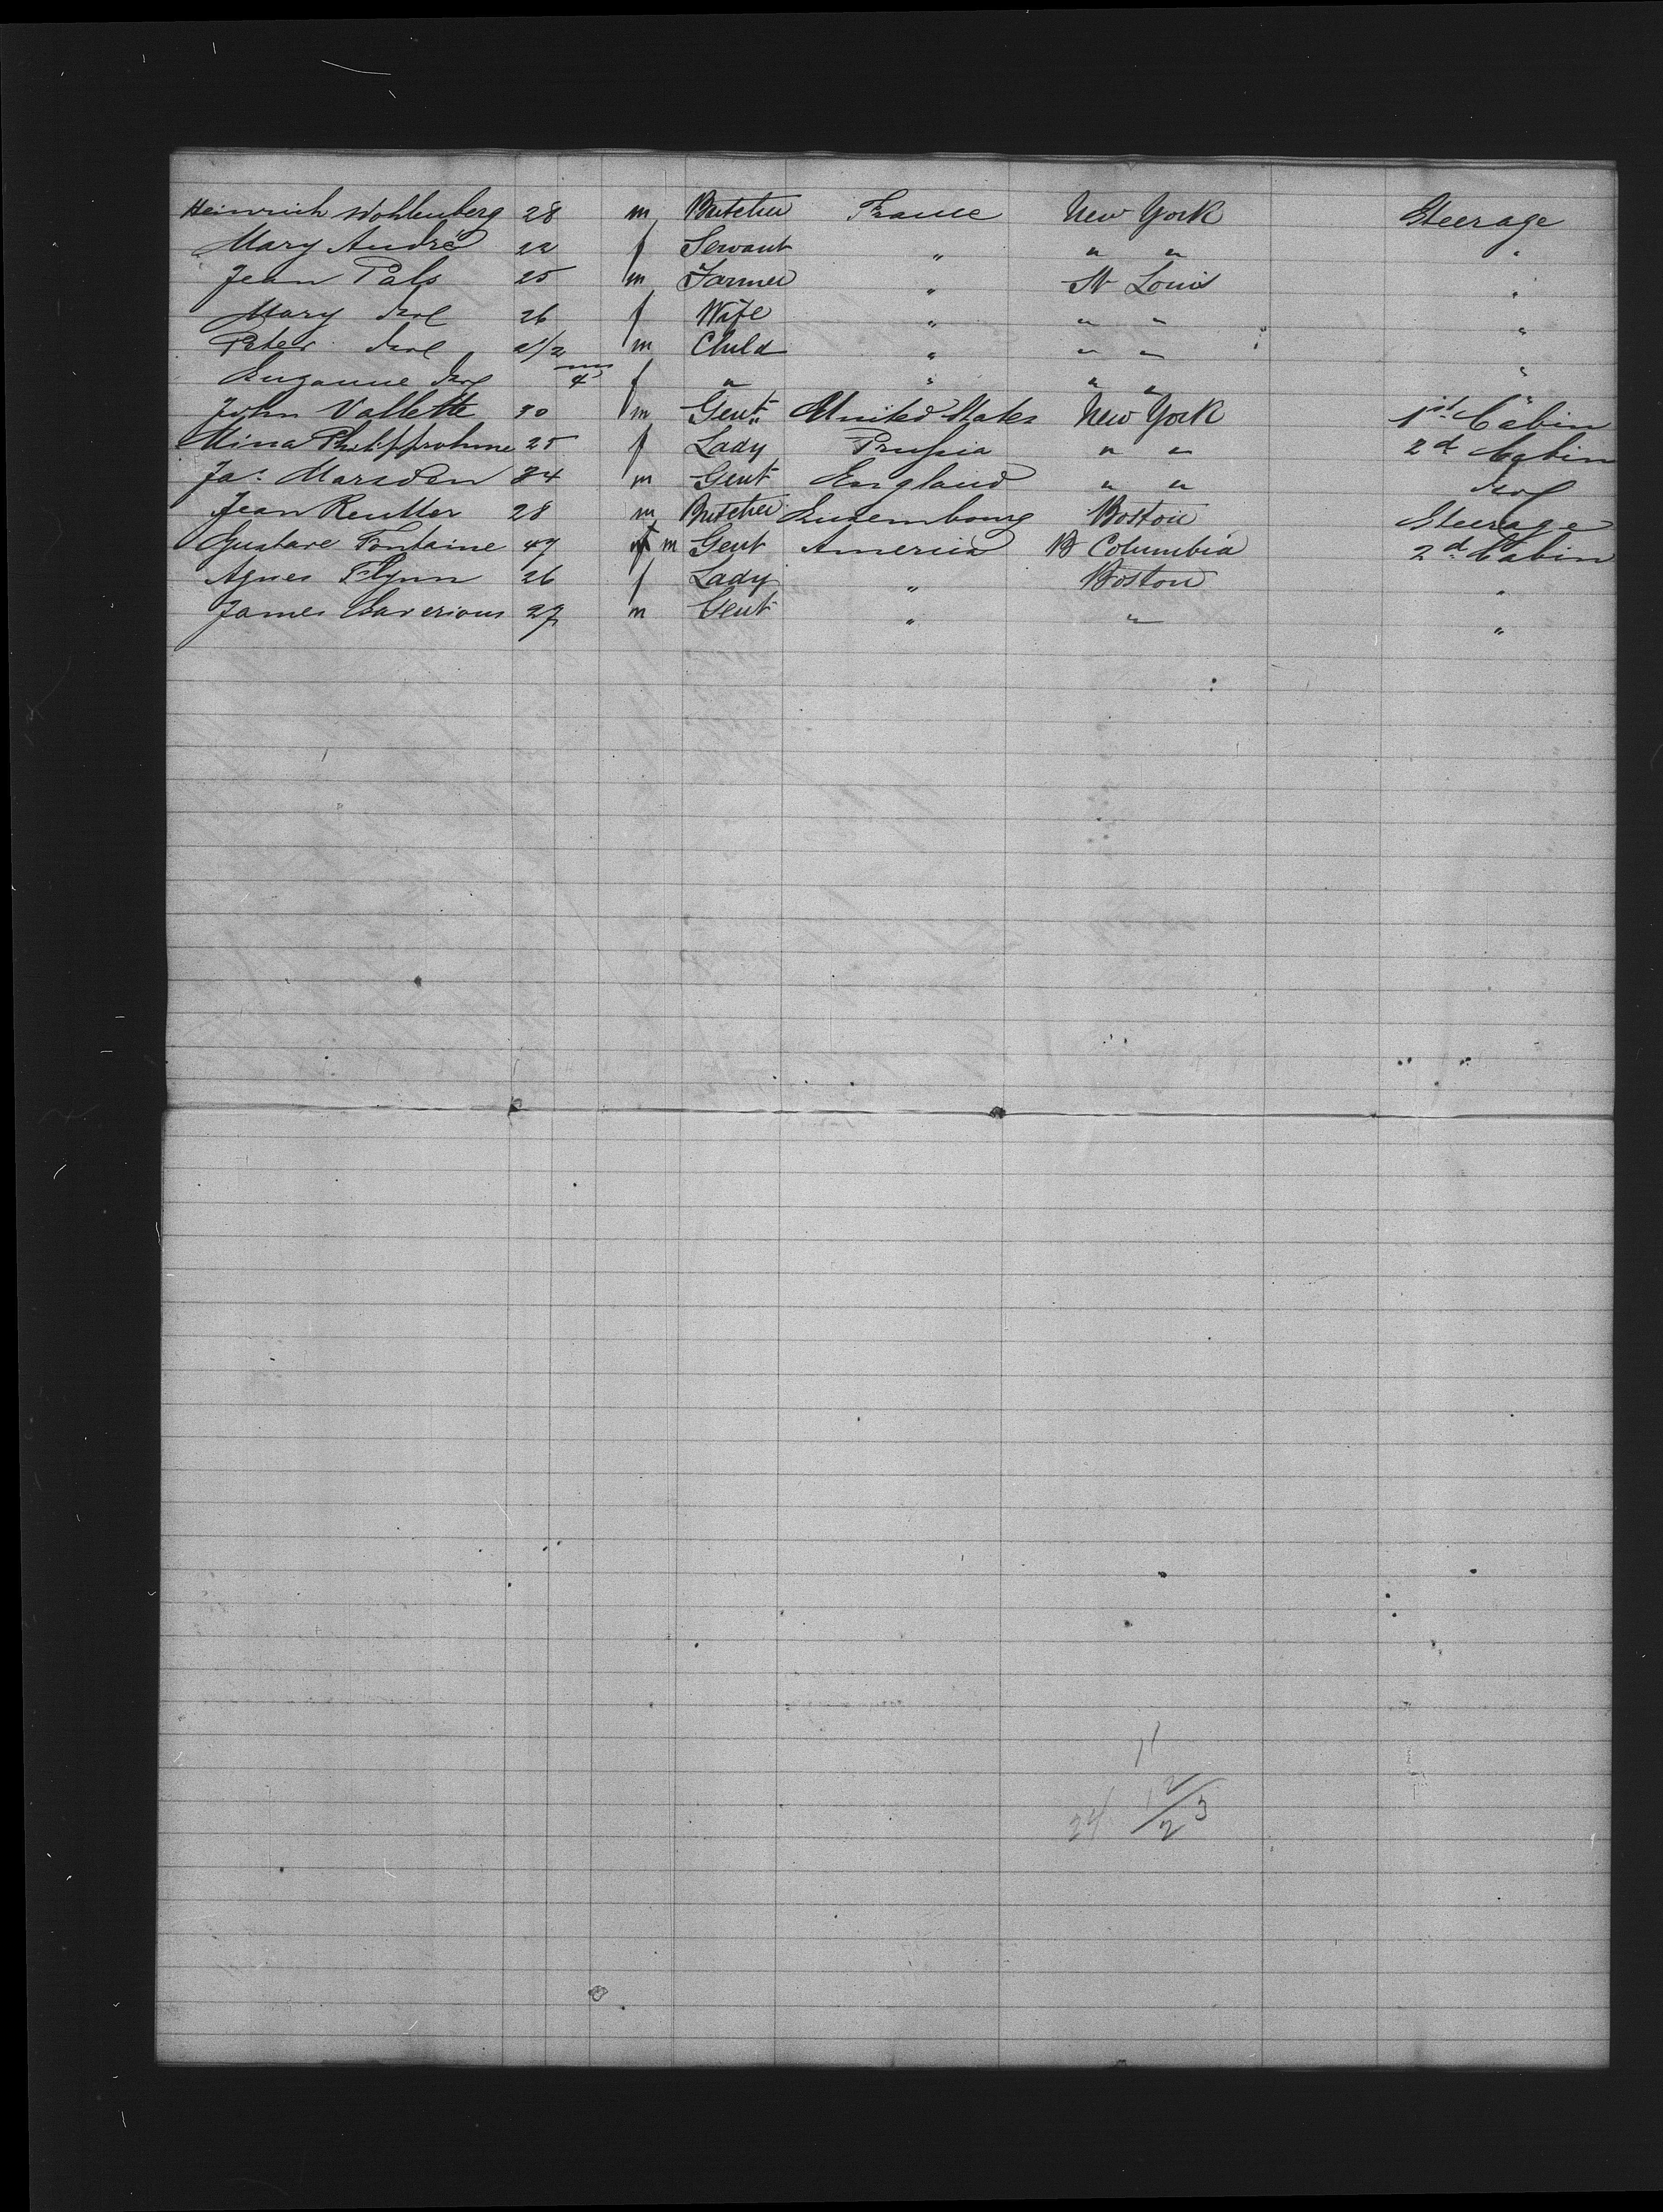 Heinrich Wohlenberg 28 m Butcher France New York Steerage
Mary André 22 f Servant " " " "
Jean Pals 25 m Farmer " St Louis "
Mary 26 f Wife " " " "
Peter m Child " " " "
Suzanne 4 f " " " " "
John Vallette 30 m Gent United States New York 1st Cabin
Mina 25 f Lady Prussia " " 2d Cabin
Jas. Marsden 34 m Gent England " "
Jean Reutter 28 m Butcher Luxembourg Boston Steerage
Gustave Fontaine 47 m Gent America B Columbia 2d Cabin
Agnes Flynn 26 f Lady " Boston "
James 27 m Gent " " "
11
24 2 3